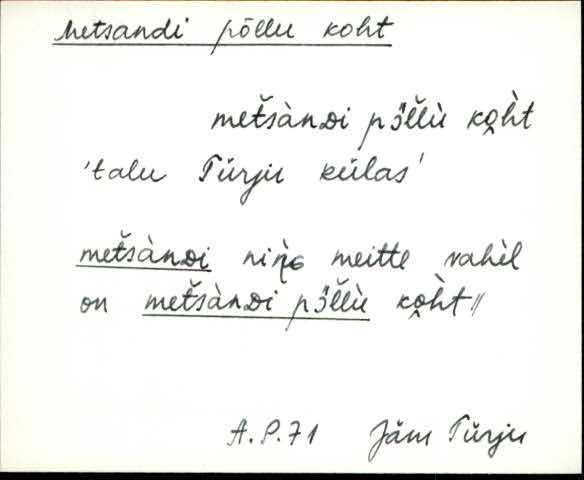 Metsandi põllu koht
met̆sànᴅi pɜ̈l̆lù ko̭h̀t
'talu Türju külas'
met̆sànᴅi niǹɢ meitte vahèl
on met̆sànᴅi pɜ̈l̆lù ko̭h̀t //
A.P.71 Jäm Türju